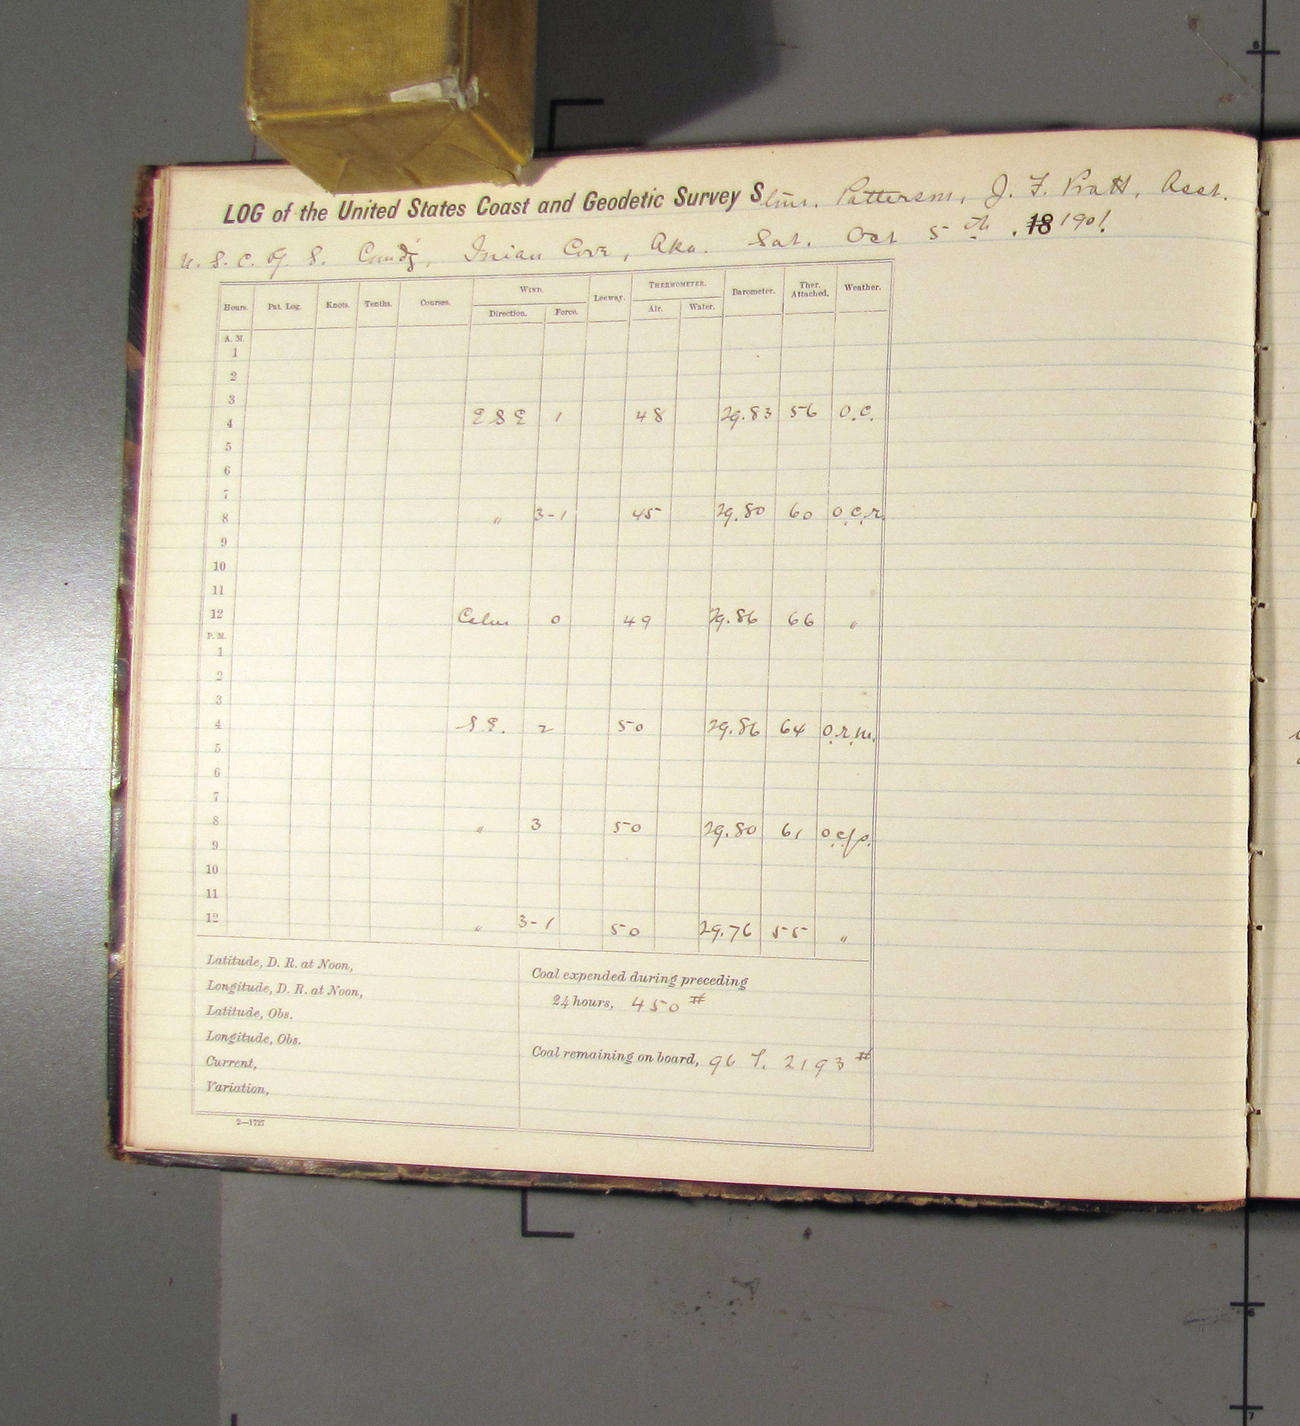 LOG of the United States Coast and Geodetic Survey Stmr. Patterson, J. F. Pratt, Asst.
U. S. C. & G. S. Comd'g, Inian Cove, Aka. Sat. Oct 5th, 18 1901
Hours. Pat. Log. Knots. Tenths. Courses. WIND. Leeway. THERMOMETER. Barometer. Ther. Attached. Weather.
Direction. Force. Air. Water.
A. M.
1
2
3
4 E S E 1 48 29.83 56 O.C.
5
6
7
8 " 3-1 45 29.80 60 O.C.R.
9
10
11
12 Calm 0 49 29.86 66 "
P. M.
1
2
3
4 S.E. 2 50 29.86 64 O.R.M.
5
6
7
8 " 3 50 29.80 61 O.C.P.
9
10
11
12 " 3-1 50 29.76 55 "
Latitude, D. R. at Noon,
Longitude, D. R. at Noon,
Latitude, Obs.
Longitude, Obs.
Current,
Variation,
Coal expended during preceding
24 hours, 450 #
Coal remaining on board, 96 T. 2193 #
2—1727